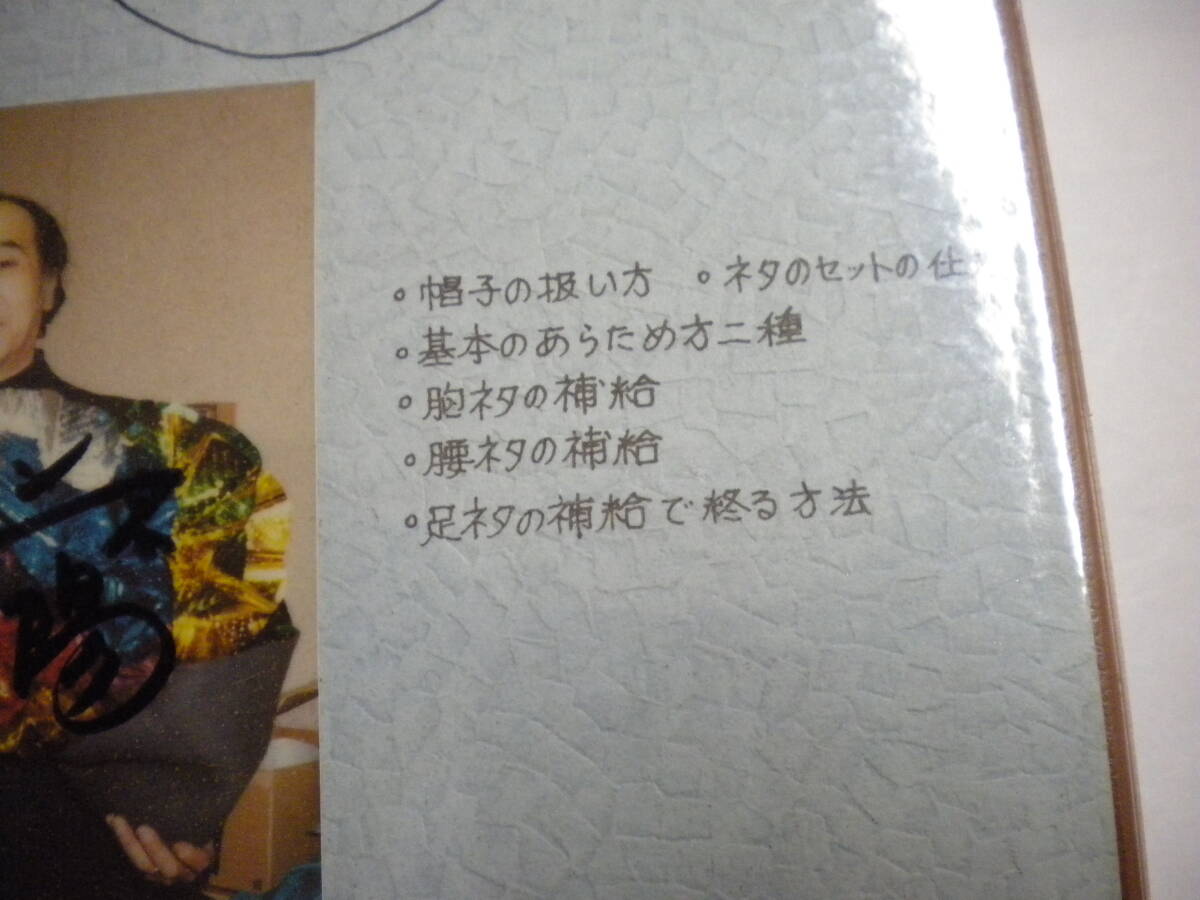 。帽子の扱い方 。ネタのセットの仕
。基本のあらため方二種
。胸ネタの補給
。腰ネタの補給
。足ネタの補給で終る方法